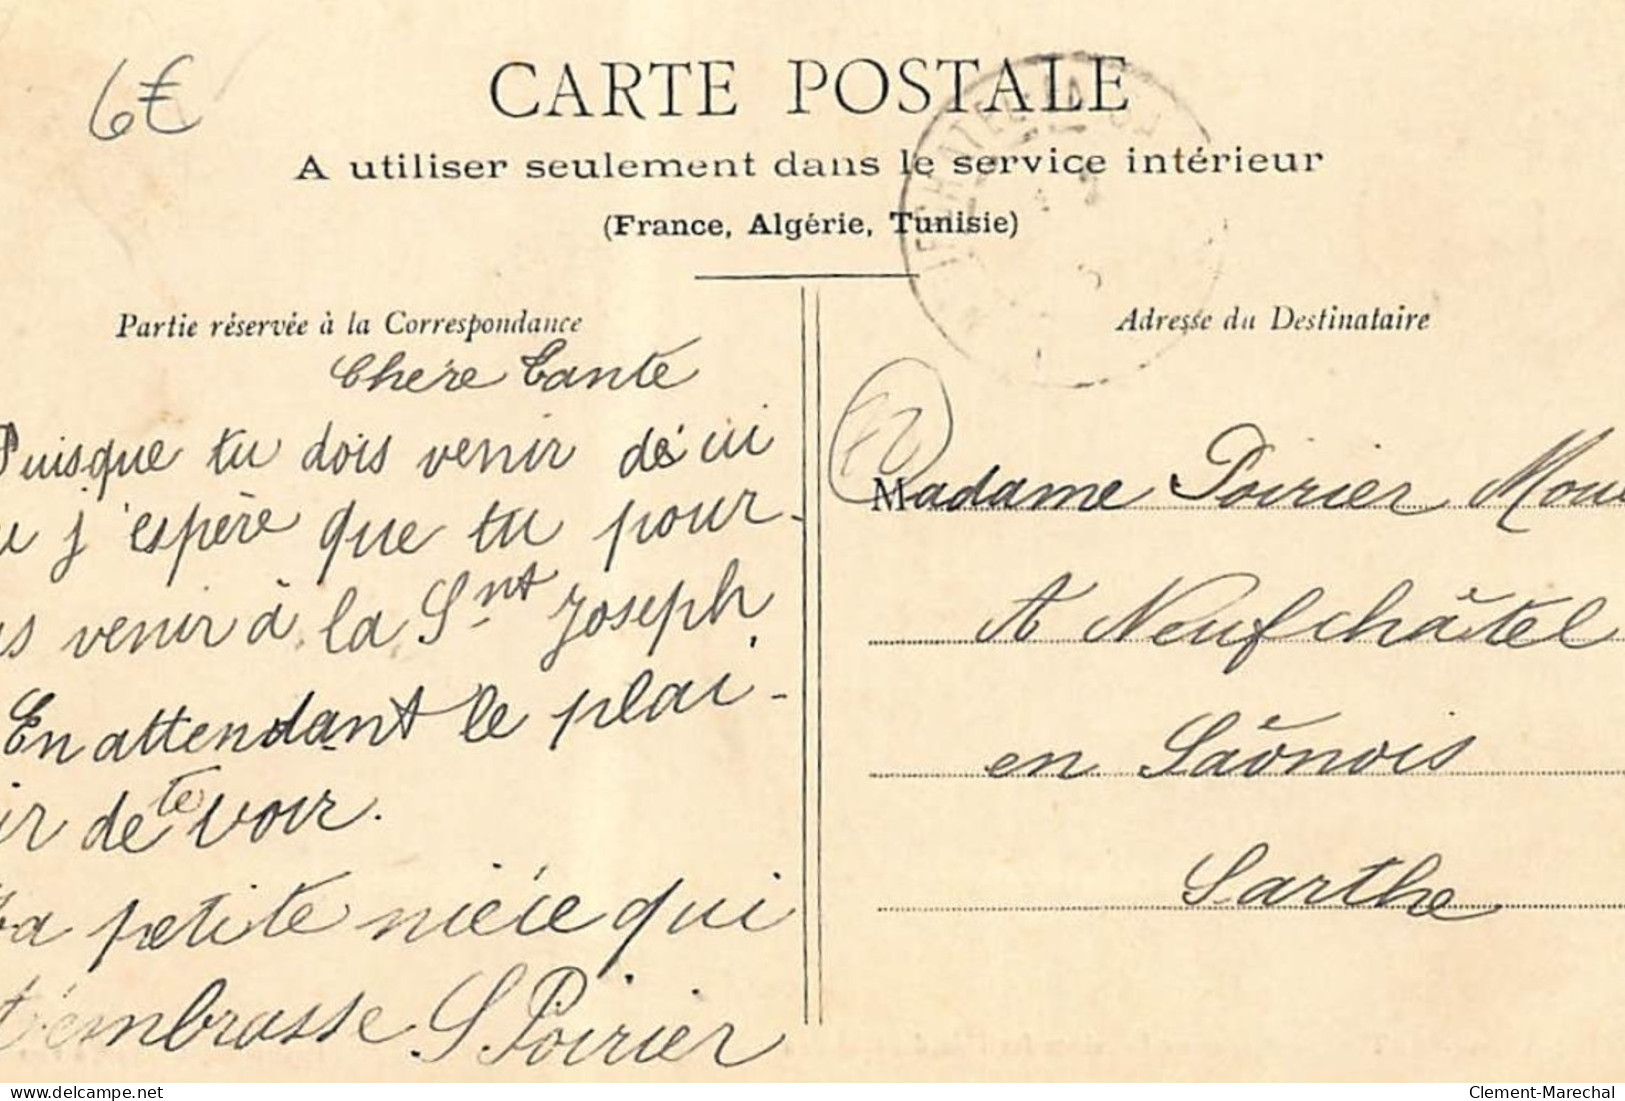 6€
CARTE POSTALE
A utiliser seulement dans le service intérieur
(France, Algérie, Tunisie)
Partie réservée à la Correspondance
Chère Tante
Puisque tu dois venir
j'espère que tu pour-
venir à la Snt Joseph.
En attendant le plai-
ir de te voir.
Ta petite nièce qui
t'embrasse S Poirier
Adresse du Destinataire
12
Madame Poirier Mou
A Neufchâtel
en Saônois
Sarthe
delcampe.net
Clement-Marechal